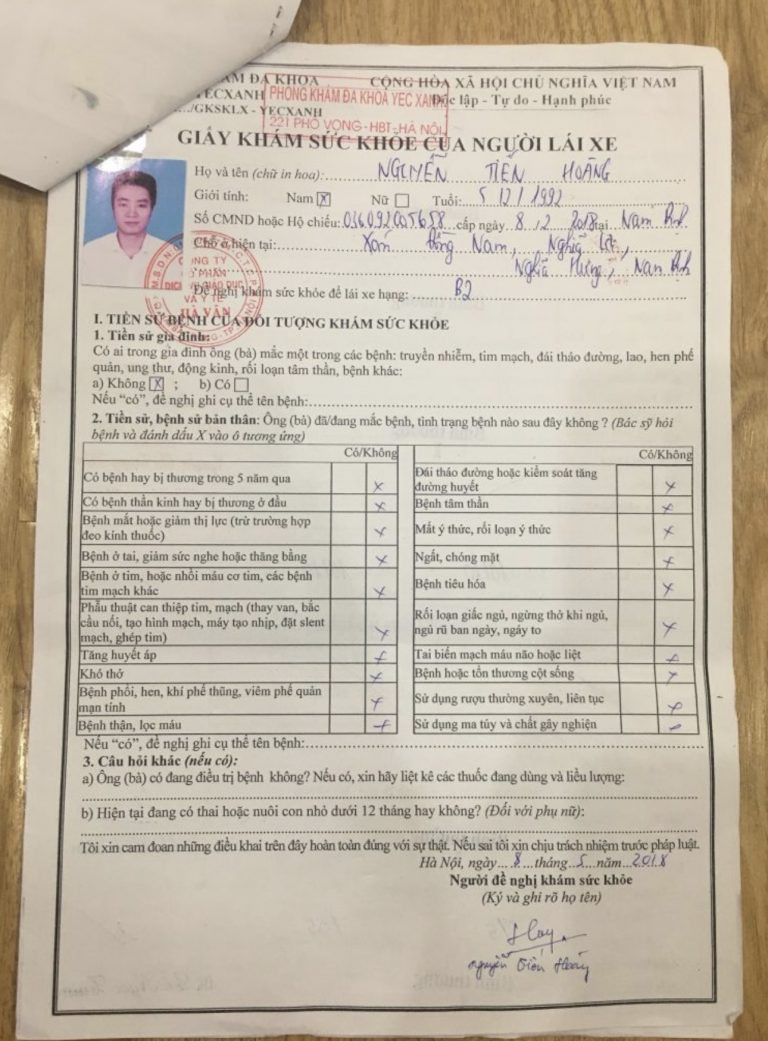 ÁM ĐA KHOA CỘNG HÒA XÃ HỘI CHỦ NGHĨA VIỆT NAM
YECXANH Độc lập - Tự do - Hạnh phúc
/GKSKLX - YECXANH
PHÒNG KHÁM ĐA KHOA YEC XANH
221 PHỐ VỌNG-HBT-HÀ NỘI
GIẤY KHÁM SỨC KHỎE CỦA NGƯỜI LÁI XE
Họ và tên (chữ in hoa): NGUYỄN TIẾN HOÀNG
Giới tính: Nam X Nữ Tuổi: 5/12/1992
Số CMND hoặc Hộ chiếu: 036092005658 cấp ngày 8/2 2018 tại Nam Định
Chỗ ở hiện tại: Xóm Hồng Nam, Nghĩa
Nghĩa Hưng, Nam Định
CÔNG TY
CỔ PHẦN
GIÁO DỤC
VÀ Y TẾ
HÀ VĂN
Đề nghị khám sức khỏe để lái xe hạng: B2
I. TIỀN SỬ BỆNH CỦA ĐỐI TƯỢNG KHÁM SỨC KHỎE
1. Tiền sử gia đình:
Có ai trong gia đình ông (bà) mắc một trong các bệnh: truyền nhiễm, tim mạch, đái tháo đường, lao, hen phế
quản, ung thư, động kinh, rối loạn tâm thần, bệnh khác:
a) Không X ; b) Có
Nếu “có”, đề nghị ghi cụ thể tên bệnh:
2. Tiền sử, bệnh sử bản thân: Ông (bà) đã/đang mắc bệnh, tình trạng bệnh nào sau đây không ? (Bác sỹ hỏi
bệnh và đánh dấu X vào ô tương ứng)
Có/Không
Có bệnh hay bị thương trong 5 năm qua x
Có bệnh thần kinh hay bị thương ở đầu x
Bệnh mắt hoặc giảm thị lực (trừ trường hợp
đeo kính thuốc) x
Bệnh ở tai, giảm sức nghe hoặc thăng bằng x
Bệnh ở tim, hoặc nhồi máu cơ tim, các bệnh
tim mạch khác x
Phẫu thuật can thiệp tim, mạch (thay van, bắc
cầu nối, tạo hình mạch, máy tạo nhịp, đặt slent
mạch, ghép tim) x
Tăng huyết áp x
Khó thở x
Bệnh phổi, hen, khí phế thũng, viêm phế quản
mạn tính x
Bệnh thận, lọc máu x
Có/Không
Đái tháo đường hoặc kiểm soát tăng
đường huyết x
Bệnh tâm thần x
Mất ý thức, rối loạn ý thức x
Ngất, chóng mặt x
Bệnh tiêu hóa x
Rối loạn giấc ngủ, ngừng thở khi ngủ,
ngủ rũ ban ngày, ngáy to x
Tai biến mạch máu não hoặc liệt x
Bệnh hoặc tổn thương cột sống x
Sử dụng rượu thường xuyên, liên tục x
Sử dụng ma túy và chất gây nghiện x
Nếu “có”, đề nghị ghi cụ thể tên bệnh:
3. Câu hỏi khác (nếu có):
a) Ông (bà) có đang điều trị bệnh không? Nếu có, xin hãy liệt kê các thuốc đang dùng và liều lượng:
b) Hiện tại đang có thai hoặc nuôi con nhỏ dưới 12 tháng hay không? (Đối với phụ nữ):
Tôi xin cam đoan những điều khai trên đây hoàn toàn đúng với sự thật. Nếu sai tôi xin chịu trách nhiệm trước pháp luật.
Hà Nội, ngày 8 tháng 5 năm 2018
Người đề nghị khám sức khỏe
(Ký và ghi rõ họ tên)
Nguyễn Tiến Hoàng